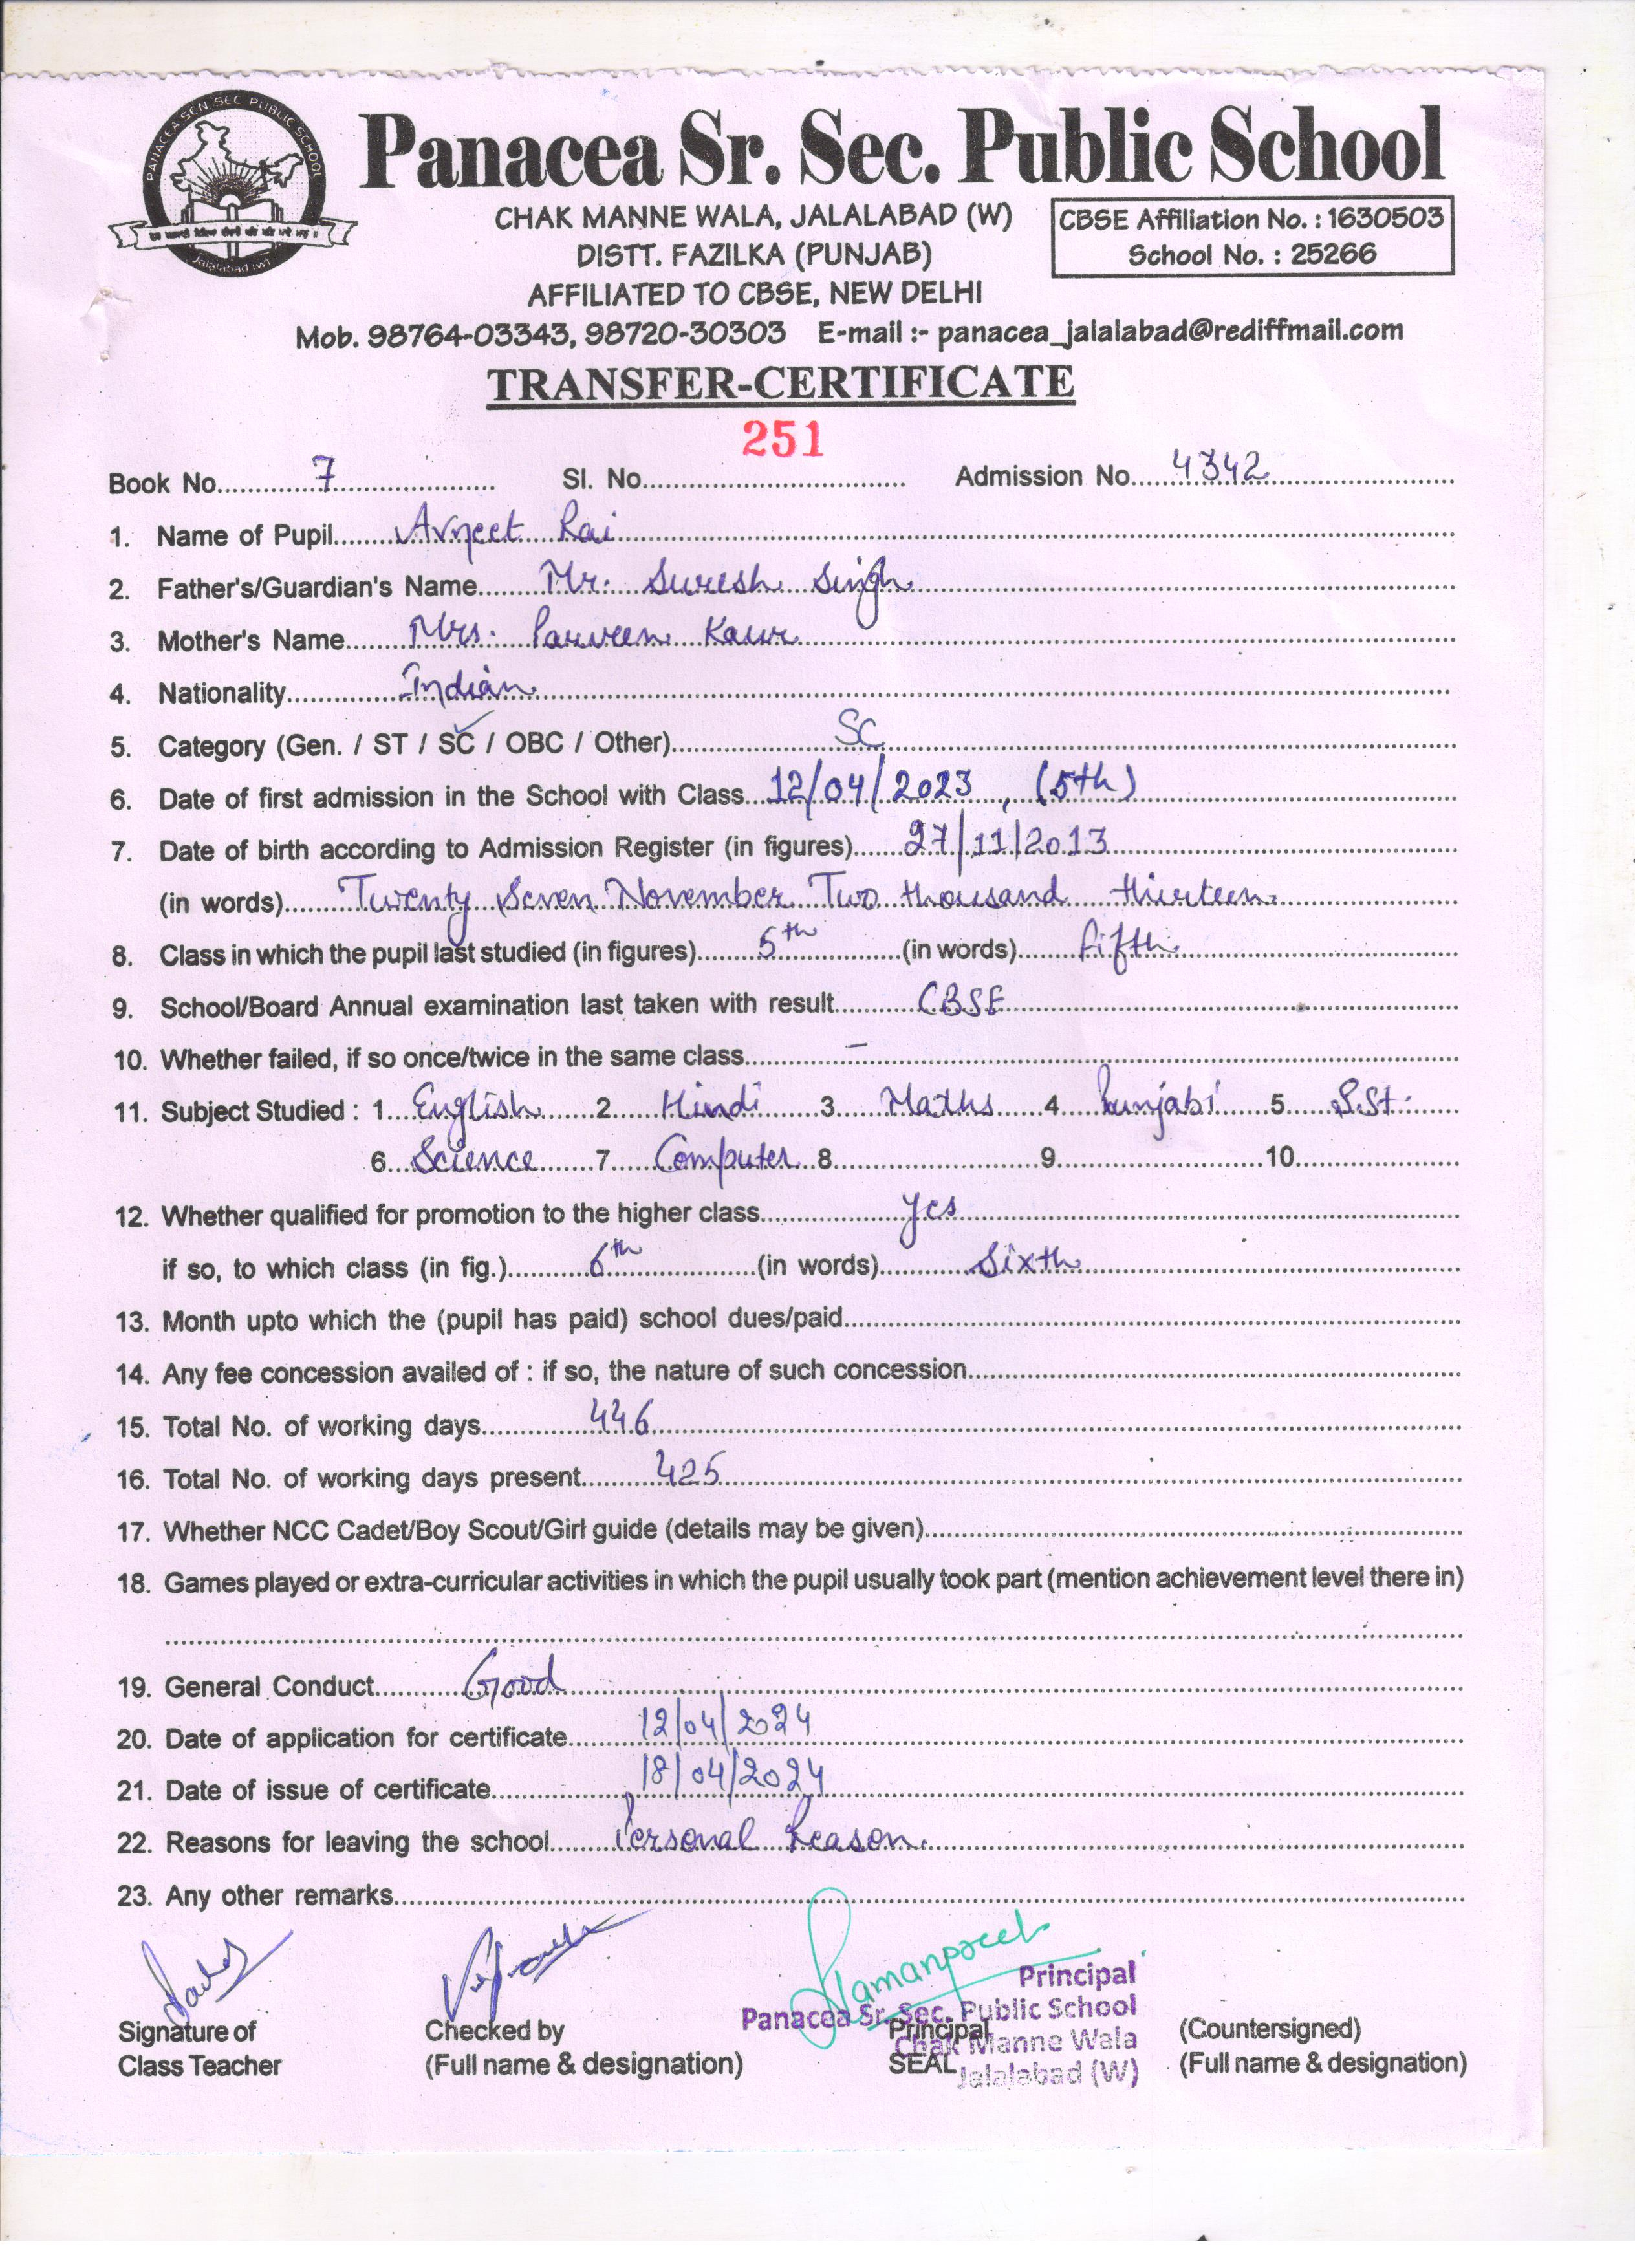 PANACEA SCN SEC PUBLIC SCHOOL
Jalalabad (W)
Panacea Sr. Sec. Public School
CHAK MANNE WALA, JALALABAD (W)
DISTT. FAZILKA (PUNJAB)
CBSE Affiliation No. : 1630503
School No. : 25266
AFFILIATED TO CBSE, NEW DELHI
Mob. 98764-03343, 98720-30303 E-mail :- panacea_jalalabad@rediffmail.com
TRANSFER-CERTIFICATE
251
Book No. 7 Sl. No. Admission No. 4342
1. Name of Pupil Avneet Rai
2. Father's/Guardian's Name Mr. Suresh Singh
3. Mother's Name Mrs. Parveen Kaur
4. Nationality Indian
5. Category (Gen. / ST / SC / OBC / Other) SC
6. Date of first admission in the School with Class 12/04/2023, (5th)
7. Date of birth according to Admission Register (in figures) 27/11/2013
(in words) Twenty Seven November Two thousand thirteen
8. Class in which the pupil last studied (in figures) 5th (in words) fifth
9. School/Board Annual examination last taken with result CBSE
10. Whether failed, if so once/twice in the same class –
11. Subject Studied : 1 English 2 Hindi 3 Maths 4 Punjabi 5 S.St.
6 Science 7 Computer 8 9 10
12. Whether qualified for promotion to the higher class yes
if so, to which class (in fig.) 6th (in words) Sixth
13. Month upto which the (pupil has paid) school dues/paid
14. Any fee concession availed of : if so, the nature of such concession
15. Total No. of working days 446
16. Total No. of working days present 425
17. Whether NCC Cadet/Boy Scout/Girl guide (details may be given)
18. Games played or extra-curricular activities in which the pupil usually took part (mention achievement level there in)
19. General Conduct Good
20. Date of application for certificate 12/04/2024
21. Date of issue of certificate 18/04/2024
22. Reasons for leaving the school Personal Reason.
23. Any other remarks
Principal
Panacea Sr. Sec. Public School
Chak Manne Wala
Jalalabad (W)
Signature of
Class Teacher
Checked by
(Full name & designation)
Principal
SEAL
(Countersigned)
(Full name & designation)